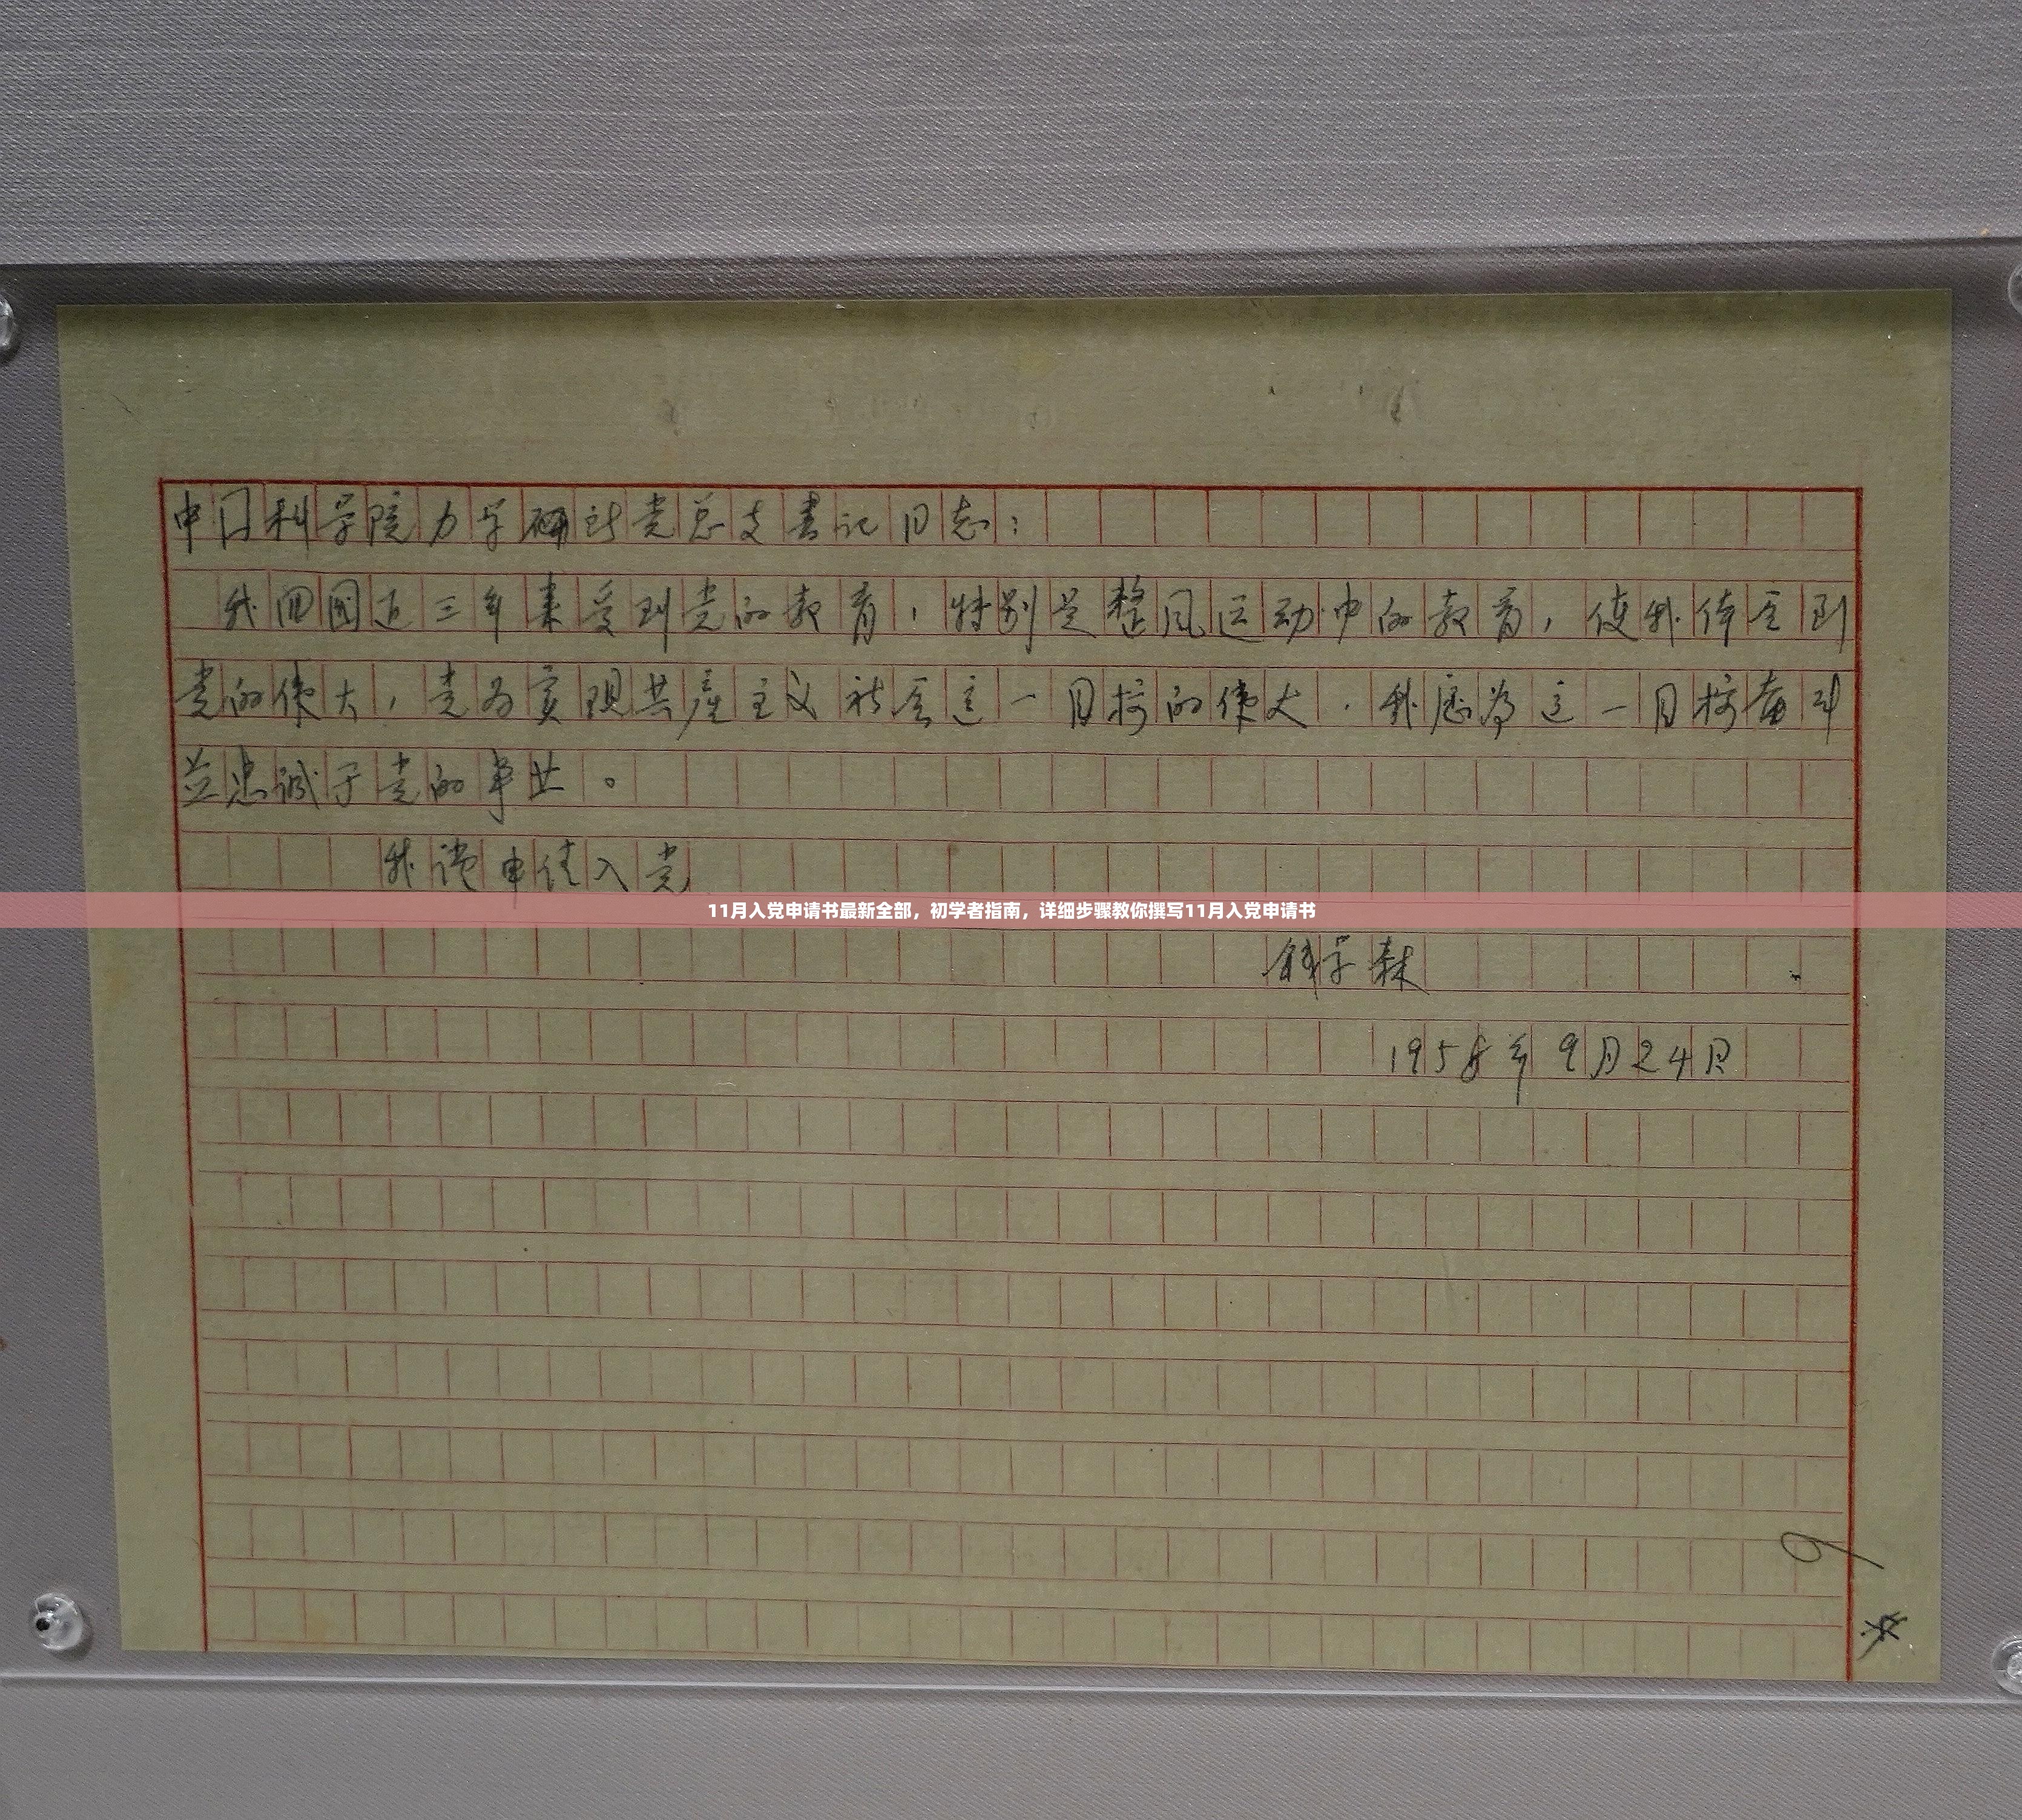 中国科学院力学研究所党总支书记同志：
我回國近三年来受到党的教育，特别是整风运动中的教育，使我体会到
党的伟大，党为实现共產主义社会这一目标的伟大．我愿为这一目标奋斗
並忠诚于党的事业。
我谨申请入党
11月入党申请书最新全部，初学者指南，详细步骤教你撰写11月入党申请书
钱学森
1958年9月24日
9